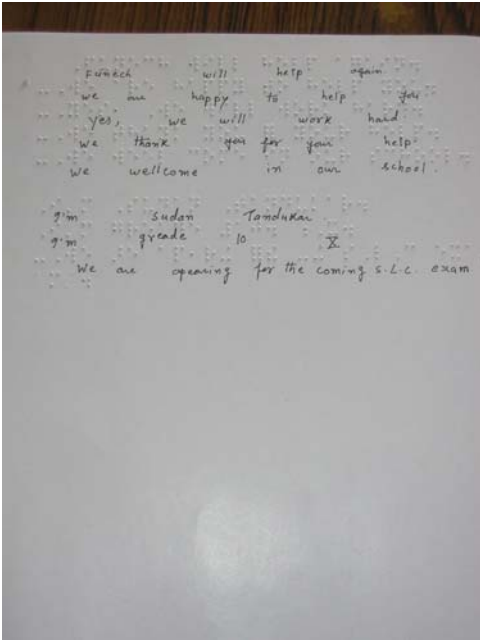 Funech will help again
we are happy to help you
yes, we will work hard
we thank you for your help
we wellcome in our school.
I'm Sudan Tandukar
I'm greade 10 X
We are apearing for the coming S.L.C. exam